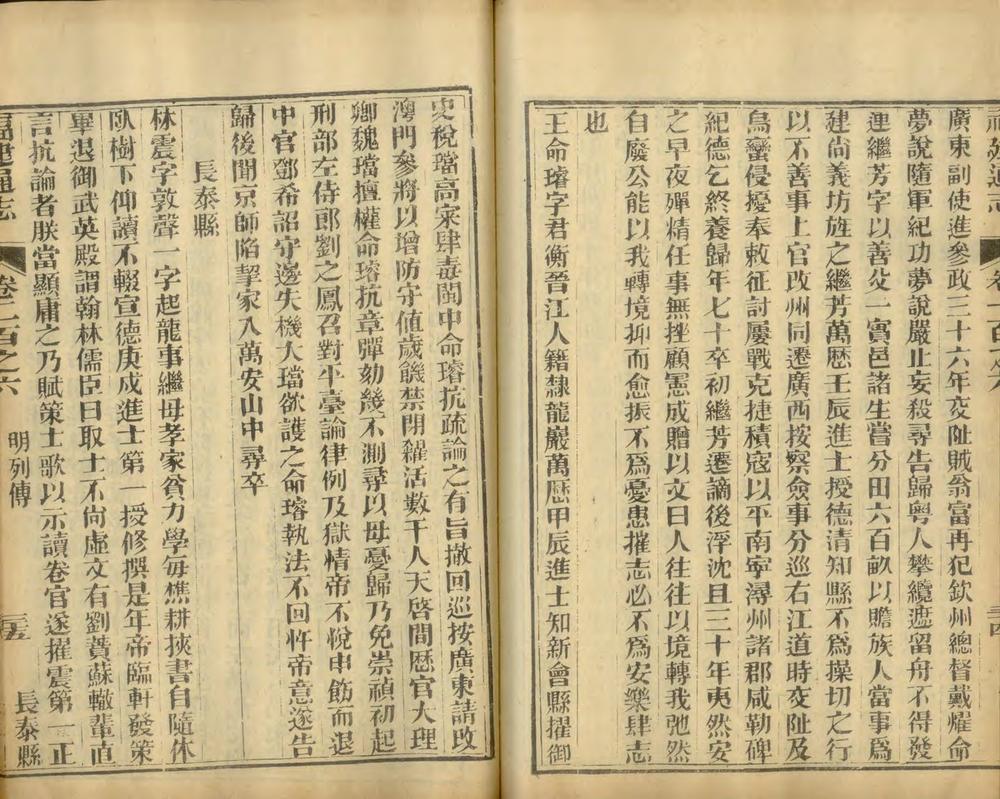 廣東副使進參政三十六年交阯賊翁富再犯欽州總督戴燿命
夢說隨軍紀功夢說嚴止妄殺尋告歸粤人攀纜遮留舟不得發
連繼芳字以善父一實邑諸生嘗分田六百畝以贍族人當事爲
建尚義坊旌之繼芳萬歴壬辰進士授德清知縣不爲操切之行
以不善事上官改州同遷廣西按察僉事分巡右江道時交阯及
鳥蠻侵擾奉敕征討屢戰克捷積寇以平南寧潯州諸郡咸勒碑
紀德乞終養歸年七十卒初繼芳遷謫後浮沈且三十年夷然安
之早夜殫精任事無挫顧憲成贈以文曰人往往以境轉我弛然
自廢公能以我轉境抑而愈振不爲憂患摧志必不爲安樂肆志
也
王命璿字君衡晉江人籍隸龍巖萬歴甲辰進士知新會縣擢御
史稅璫高寀肆毒閩中命璿抗疏論之有旨撤回巡按廣東請改
澳門參將以增防守値歲饑禁閉糴活數千人天啓間歴官大理
卿魏璫擅權命璿抗章彈劾幾不測尋以母憂歸乃免崇禎初起
刑部左侍郎劉之鳳召對平臺論律例及獄情帝不悅申飭而退
中官鄧希詔守邊失機大璫欲護之命璿執法不回忤帝意遂告
歸後聞京師陷挈家入萬安山中尋卒
長泰縣
林震字敦聲一字起龍事繼母孝家貧力學每樵耕挾書自隨休
臥樹下仰讀不輟宣德庚戌進士第一授修撰是年帝臨軒發策
畢退御武英殿謂翰林儒臣曰取士不尚虛文有劉蕡蘇轍輩直
言抗論者朕當顯庸之乃賦策士歌以示讀卷官遂擢震第一正
福建通志 卷二百之六 明列傳 三五 長泰縣